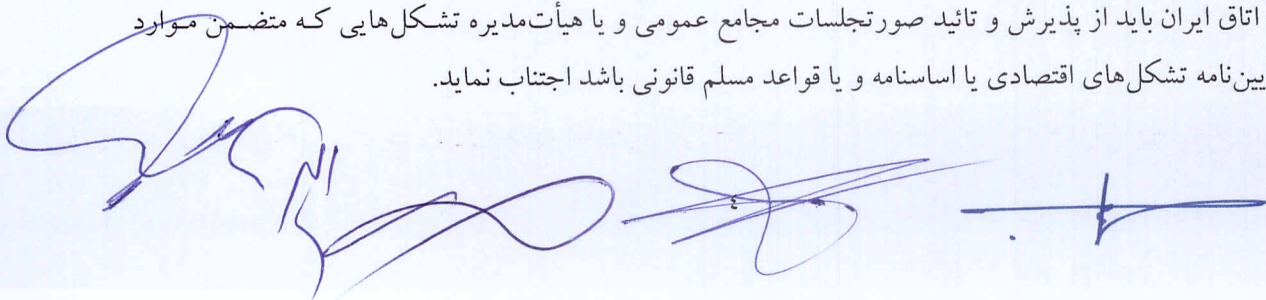 اتاق ایران باید از پذیرش و تائید صورتجلسات مجامع عمومی و یا هیأت‌مدیره تشکل‌هایی که متضمن موارد
یین‌نامه تشکل‌های اقتصادی یا اساسنامه و یا قواعد مسلم قانونی باشد اجتناب نماید.